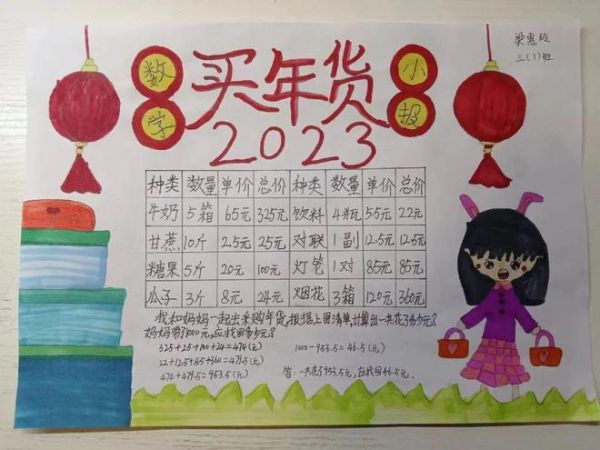 梁惠琀
三(1)班
数学
买年货
小报
2023
种类 数量 单价 总价 种类 数量 单价 总价
牛奶 5箱 65元 325元 饮料 4瓶 5.5元 22元
甘蔗 10斤 2.5元 25元 对联 1副 12.5元 12.5元
糖果 5斤 20元 100元 灯笼 1对 85元 85元
瓜子 3斤 8元 24元 烟花 3箱 120元 360元
我和妈妈一起去采购年货,根据上图清单计算出一共花了多少元?
妈妈带了1000元,应找回多少元?
325+25+100+24=474(元) 1000-953.5=46.5(元)
22+12.5+85+360=479.5(元)
474+479.5=953.5(元) 答:一共花了953.5元,应找回46.5元.